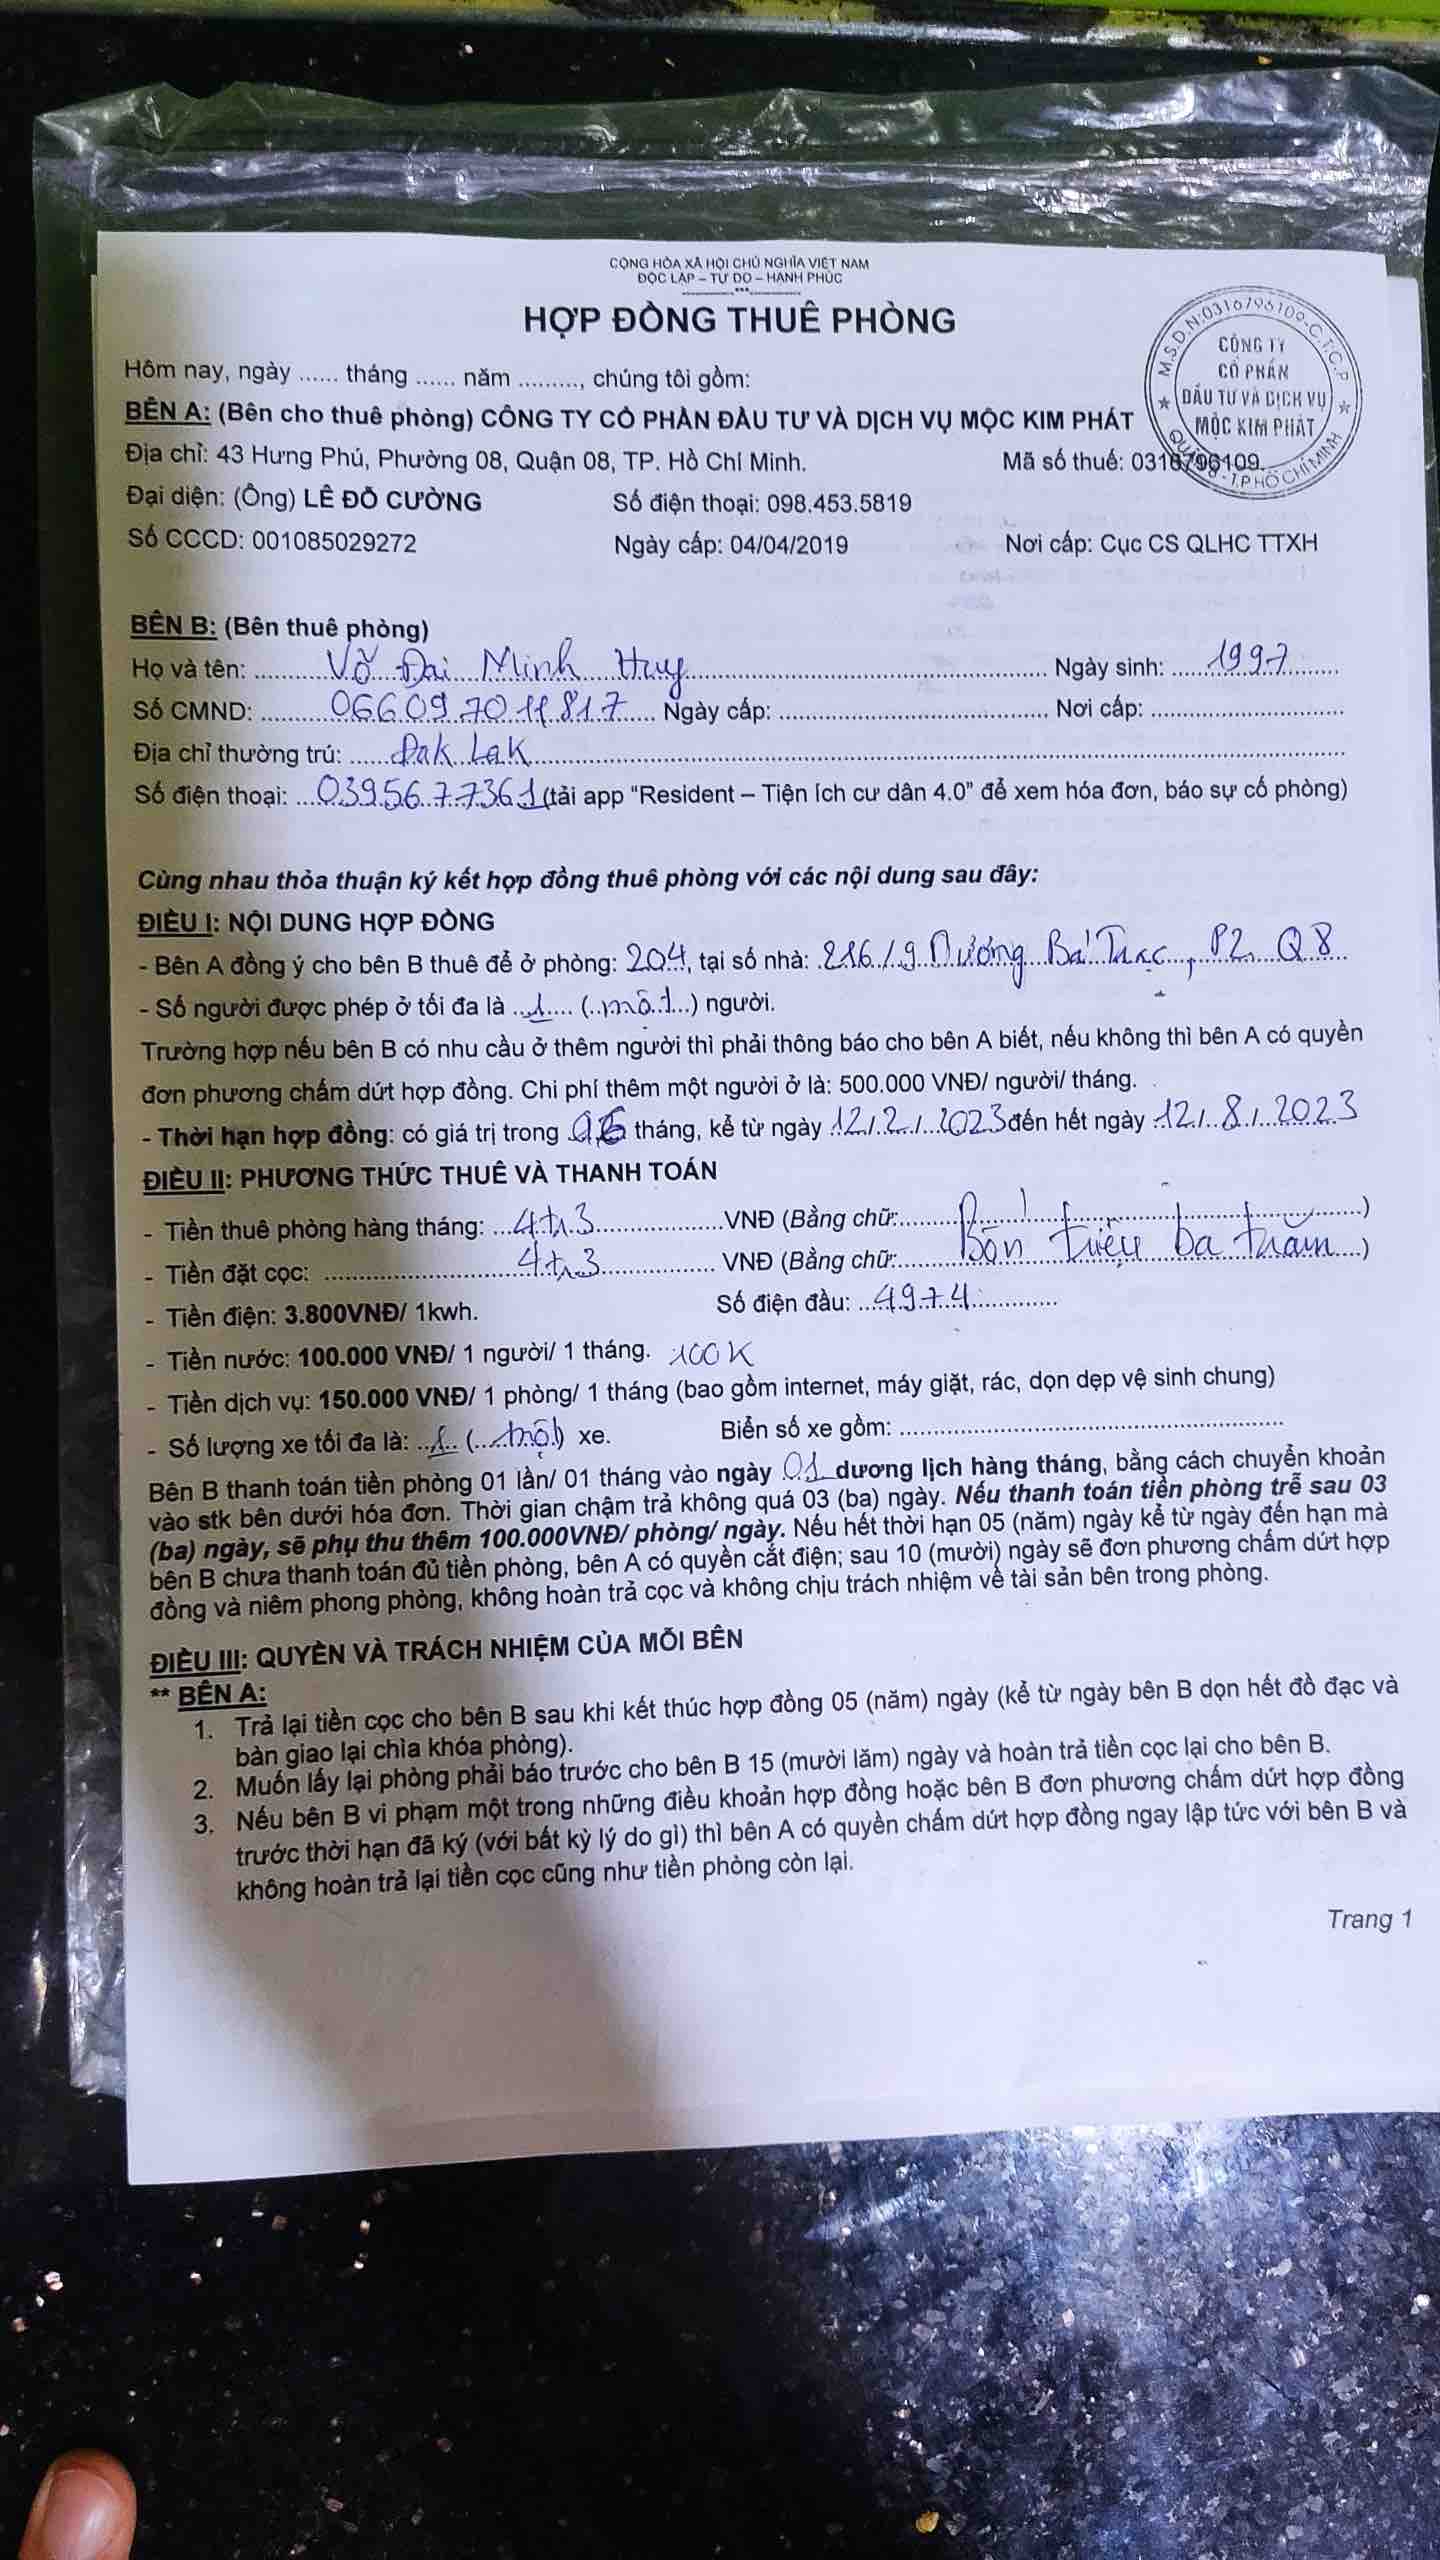 CỘNG HÒA XÃ HỘI CHỦ NGHĨA VIỆT NAM
ĐỘC LẬP – TỰ DO – HẠNH PHÚC
HỢP ĐỒNG THUÊ PHÒNG
M.S.D.N:0316796109-C.T.C.P
CÔNG TY
CỔ PHẦN
ĐẦU TƯ VÀ DỊCH VỤ
MỘC KIM PHÁT
QUẬN 8 - T.P HỒ CHÍ MINH
Hôm nay, ngày ...... tháng ...... năm ........., chúng tôi gồm:
BÊN A: (Bên cho thuê phòng) CÔNG TY CỔ PHẦN ĐẦU TƯ VÀ DỊCH VỤ MỘC KIM PHÁT
Địa chỉ: 43 Hưng Phú, Phường 08, Quận 08, TP. Hồ Chí Minh. Mã số thuế: 0316796109.
Đại diện: (Ông) LÊ ĐỖ CƯỜNG Số điện thoại: 098.453.5819
Số CCCD: 001085029272 Ngày cấp: 04/04/2019 Nơi cấp: Cục CS QLHC TTXH
BÊN B: (Bên thuê phòng)
Họ và tên: Võ Đại Minh Huy Ngày sinh: 1997
Số CMND: 066097011817 Ngày cấp: Nơi cấp:
Địa chỉ thường trú: Đak Lak
Số điện thoại: 0395677361 (tải app “Resident – Tiện ích cư dân 4.0” để xem hóa đơn, báo sự cố phòng)
Cùng nhau thỏa thuận ký kết hợp đồng thuê phòng với các nội dung sau đây:
ĐIỀU I: NỘI DUNG HỢP ĐỒNG
- Bên A đồng ý cho bên B thuê để ở phòng: 204, tại số nhà: 216/9 Dương Bá Trạc, P2, Q8
- Số người được phép ở tối đa là 1 (một) người.
Trường hợp nếu bên B có nhu cầu ở thêm người thì phải thông báo cho bên A biết, nếu không thì bên A có quyền
đơn phương chấm dứt hợp đồng. Chi phí thêm một người ở là: 500.000 VNĐ/ người/ tháng.
- Thời hạn hợp đồng: có giá trị trong 06 tháng, kể từ ngày 12/2/2023 đến hết ngày 12/8/2023
ĐIỀU II: PHƯƠNG THỨC THUÊ VÀ THANH TOÁN
- Tiền thuê phòng hàng tháng: 4tr3 VNĐ (Bằng chữ: )
- Tiền đặt cọc: 4tr3 VNĐ (Bằng chữ: Bốn triệu ba trăm )
- Tiền điện: 3.800VNĐ/ 1kwh. Số điện đầu: 4974
- Tiền nước: 100.000 VNĐ/ 1 người/ 1 tháng. 100K
- Tiền dịch vụ: 150.000 VNĐ/ 1 phòng/ 1 tháng (bao gồm internet, máy giặt, rác, dọn dẹp vệ sinh chung)
- Số lượng xe tối đa là: 1 (một) xe. Biển số xe gồm:
Bên B thanh toán tiền phòng 01 lần/ 01 tháng vào ngày 01 dương lịch hàng tháng, bằng cách chuyển khoản
vào stk bên dưới hóa đơn. Thời gian chậm trả không quá 03 (ba) ngày. Nếu thanh toán tiền phòng trễ sau 03
(ba) ngày, sẽ phụ thu thêm 100.000VNĐ/ phòng/ ngày. Nếu hết thời hạn 05 (năm) ngày kể từ ngày đến hạn mà
bên B chưa thanh toán đủ tiền phòng, bên A có quyền cắt điện; sau 10 (mười) ngày sẽ đơn phương chấm dứt hợp
đồng và niêm phong phòng, không hoàn trả cọc và không chịu trách nhiệm về tài sản bên trong phòng.
ĐIỀU III: QUYỀN VÀ TRÁCH NHIỆM CỦA MỖI BÊN
** BÊN A:
1. Trả lại tiền cọc cho bên B sau khi kết thúc hợp đồng 05 (năm) ngày (kể từ ngày bên B dọn hết đồ đạc và
bàn giao lại chìa khóa phòng).
2. Muốn lấy lại phòng phải báo trước cho bên B 15 (mười lăm) ngày và hoàn trả tiền cọc lại cho bên B.
3. Nếu bên B vi phạm một trong những điều khoản hợp đồng hoặc bên B đơn phương chấm dứt hợp đồng
trước thời hạn đã ký (với bất kỳ lý do gì) thì bên A có quyền chấm dứt hợp đồng ngay lập tức với bên B và
không hoàn trả lại tiền cọc cũng như tiền phòng còn lại.
Trang 1